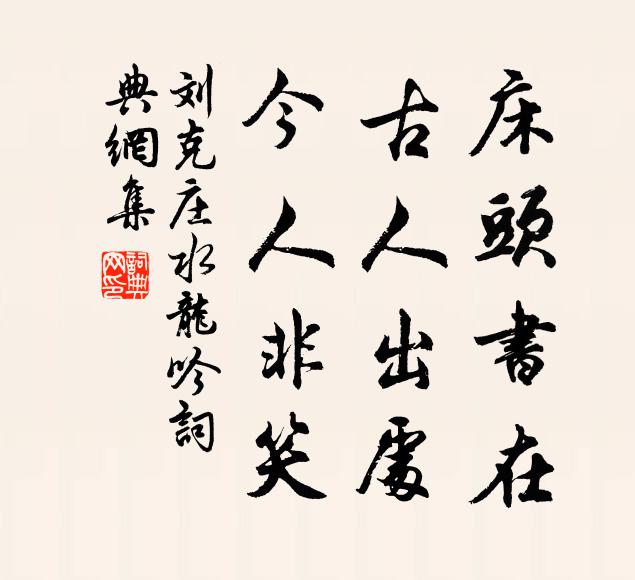 床頭書在
古人出處
今人非笑
刘克庄水龍吟詞
典網集
詞典网印